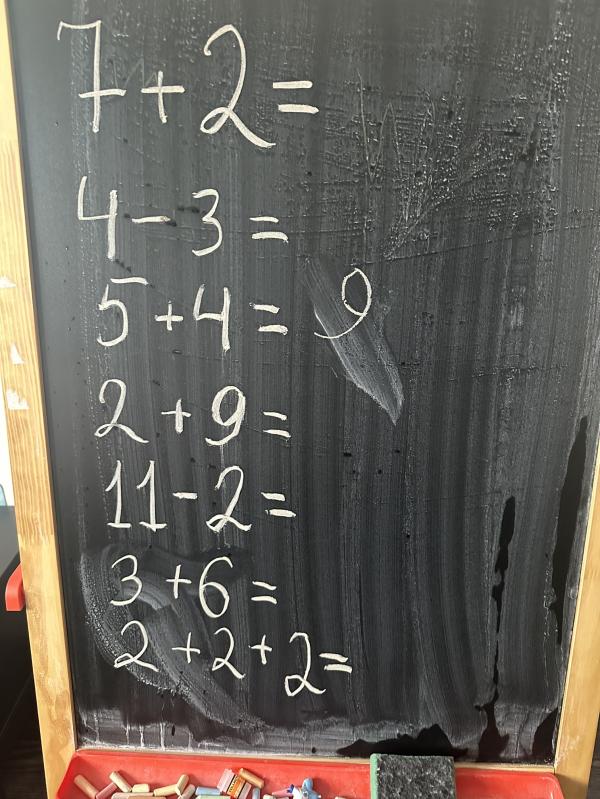 7+2=
4-3=
5+4= 9
2+9=
11-2=
3+6=
2+2+2=